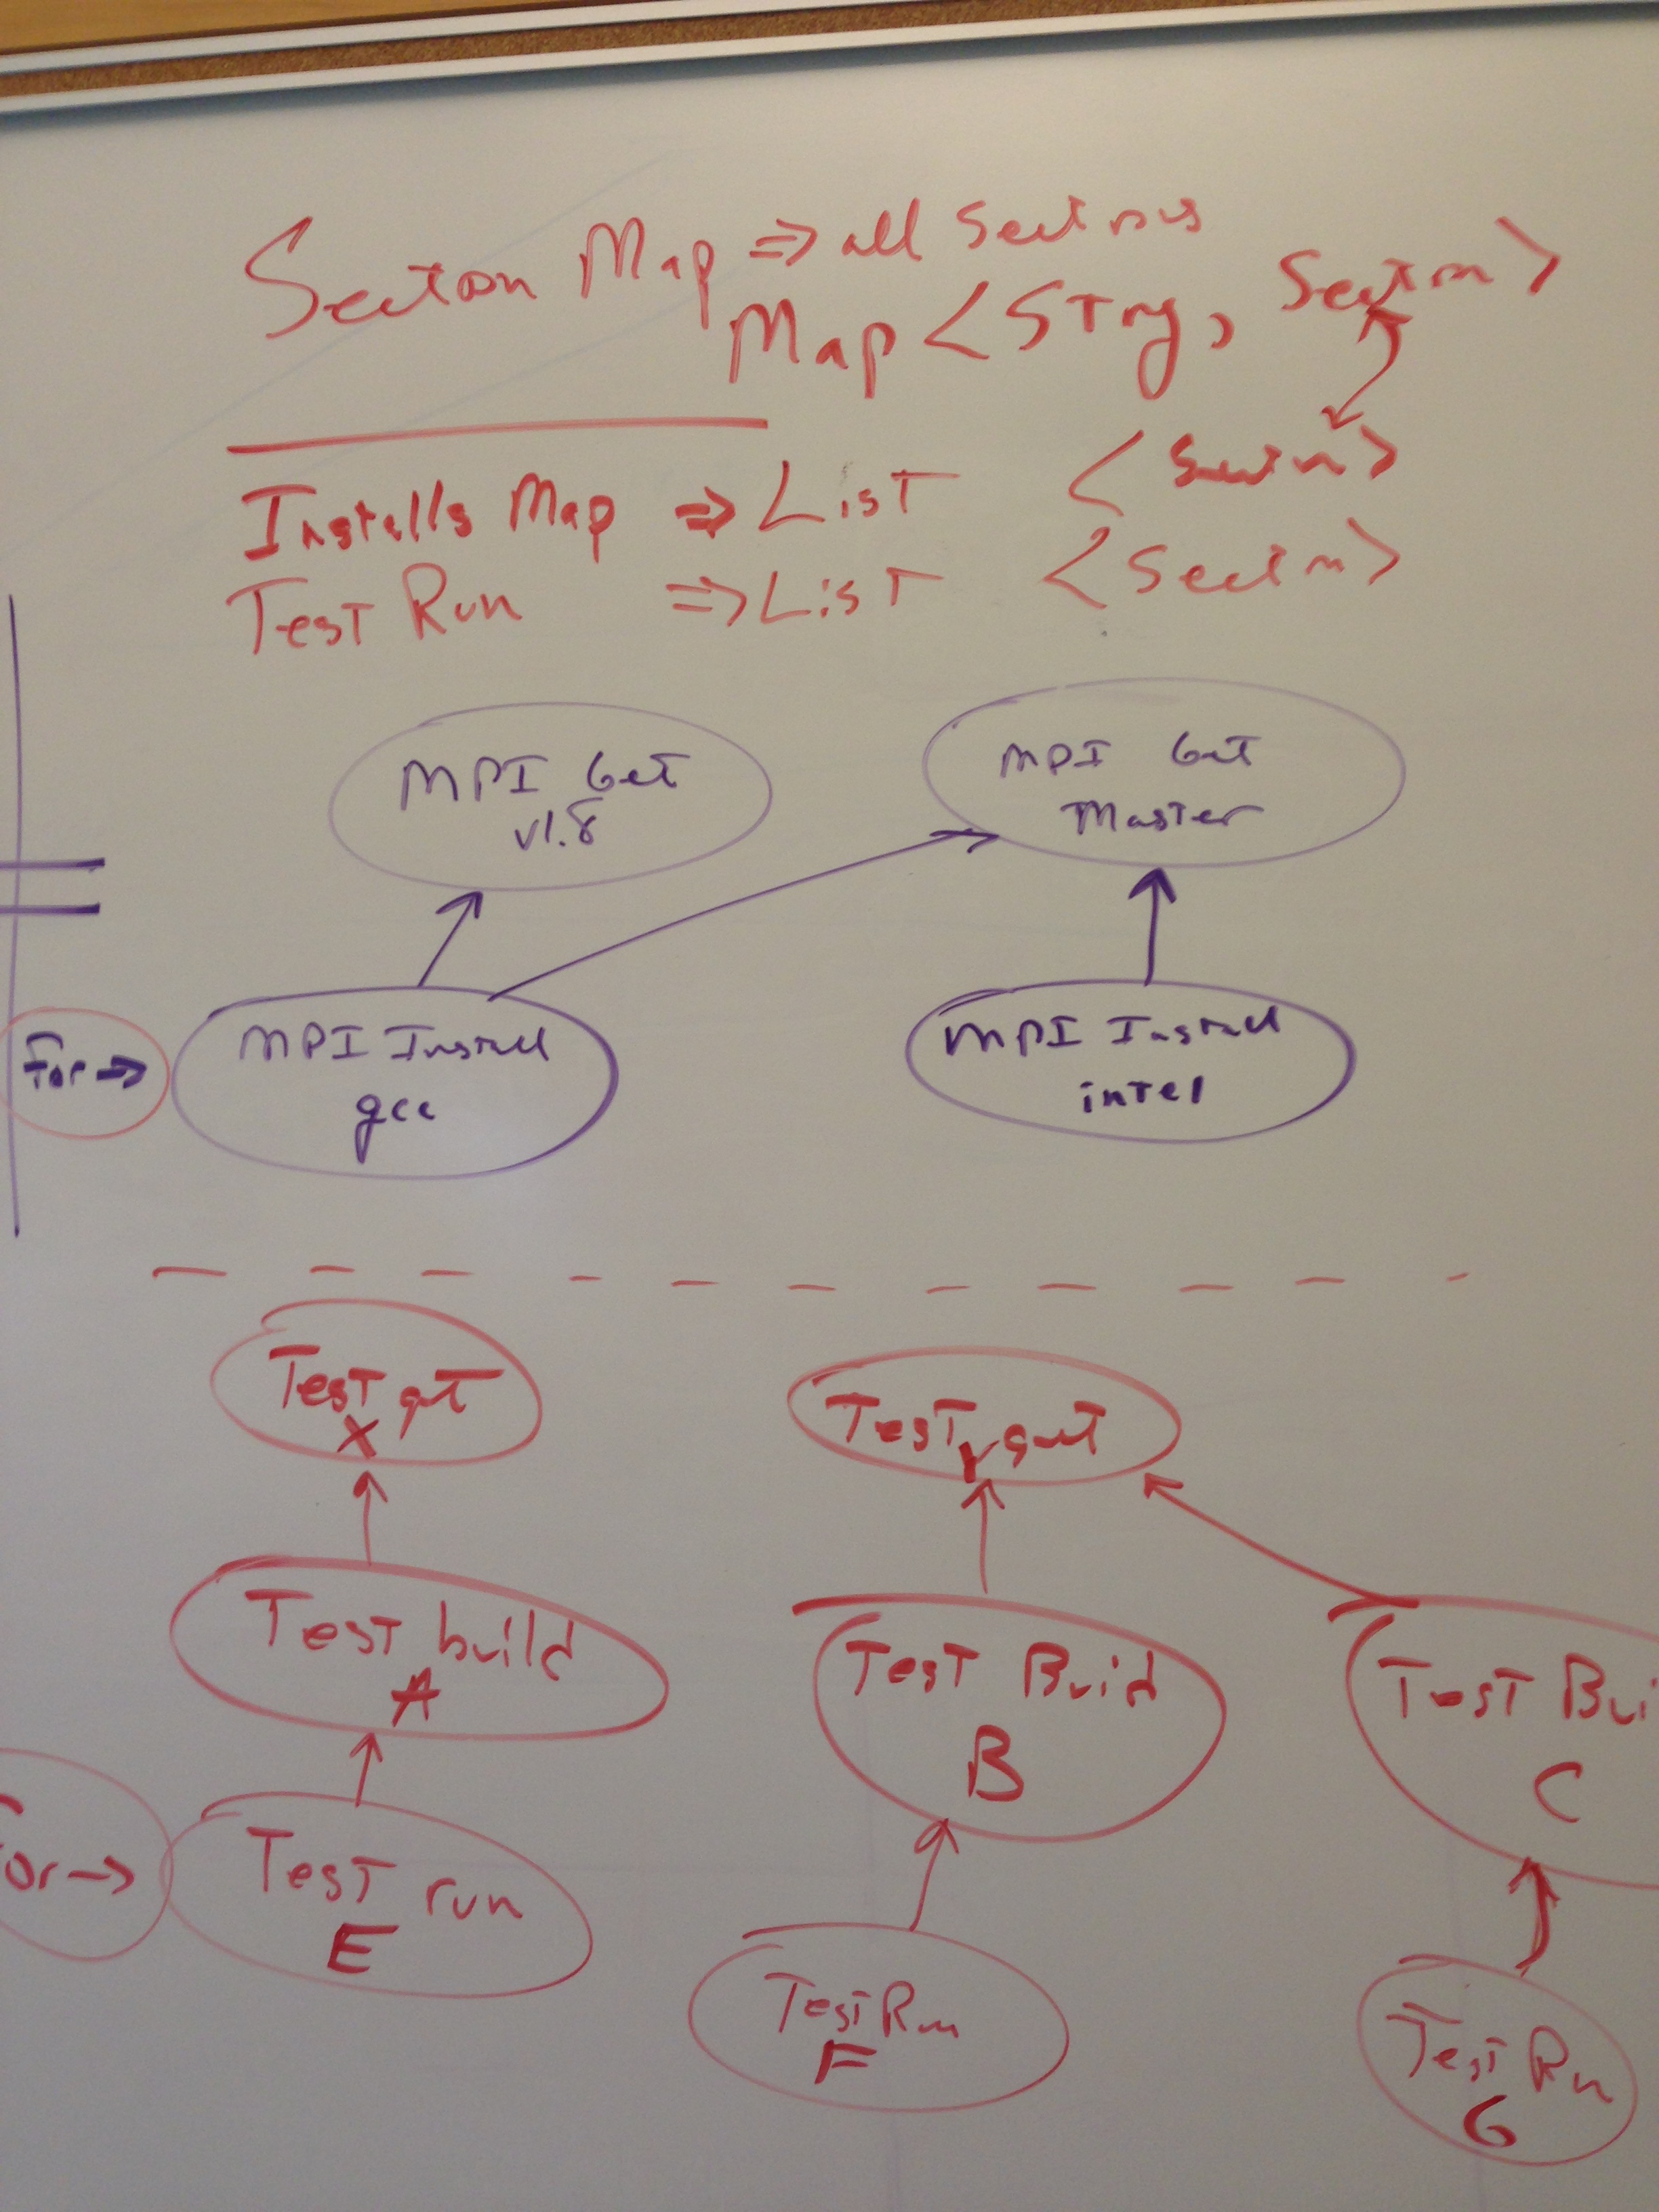 Section Map => all Sections
Map <String, Section>
Installs Map => List <Section>
Test Run => List <Section>
MPI Get
v1.8
MPI Get
Master
For →
MPI Install
gcc
MPI Install
intel
Test get
X
Test get
Y
Test build
A
Test Build
B
Test Bui
C
For →
Test run
E
Test Run
F
Test Run
G